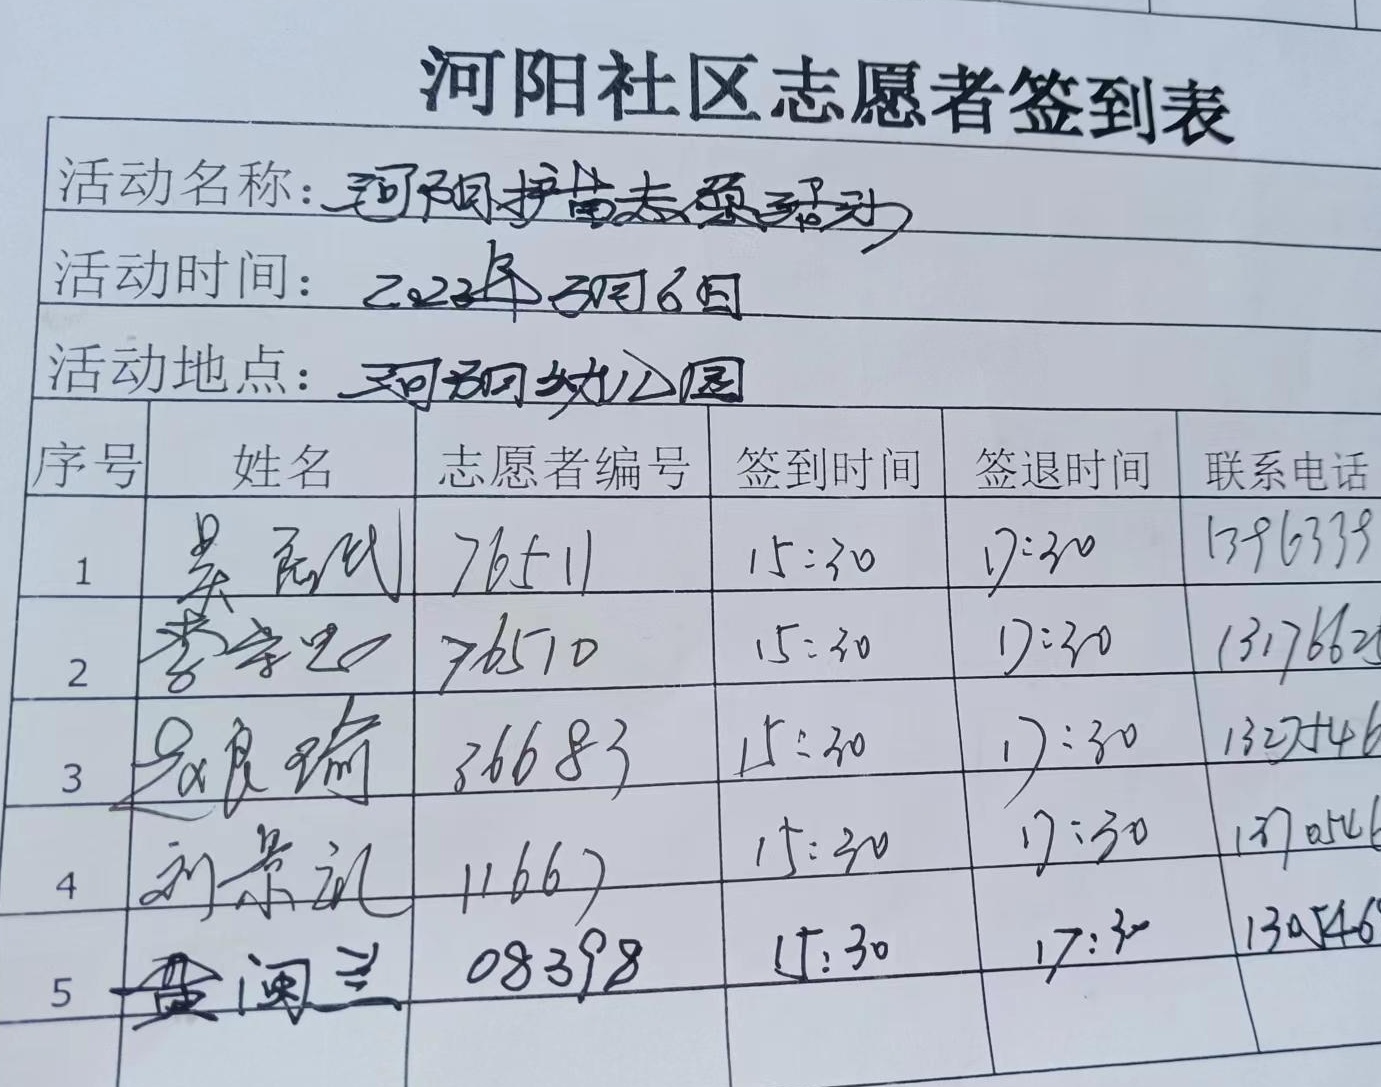 河阳社区志愿者签到表
活动名称：河阳护苗志愿活动
活动时间：2023年3月6日
活动地点：河阳幼儿园
序号 姓名 志愿者编号 签到时间 签退时间 联系电话
1 吴 76511 15:30 17:30 1396339
2 李 76510 15:30 17:30 1317662
3 赵良瑜 36683 15:30 17:30 1327546
4 刘景礼 11667 15:30 17:30 1370546
5 黄闽兰 08398 15:30 17:30 1305468